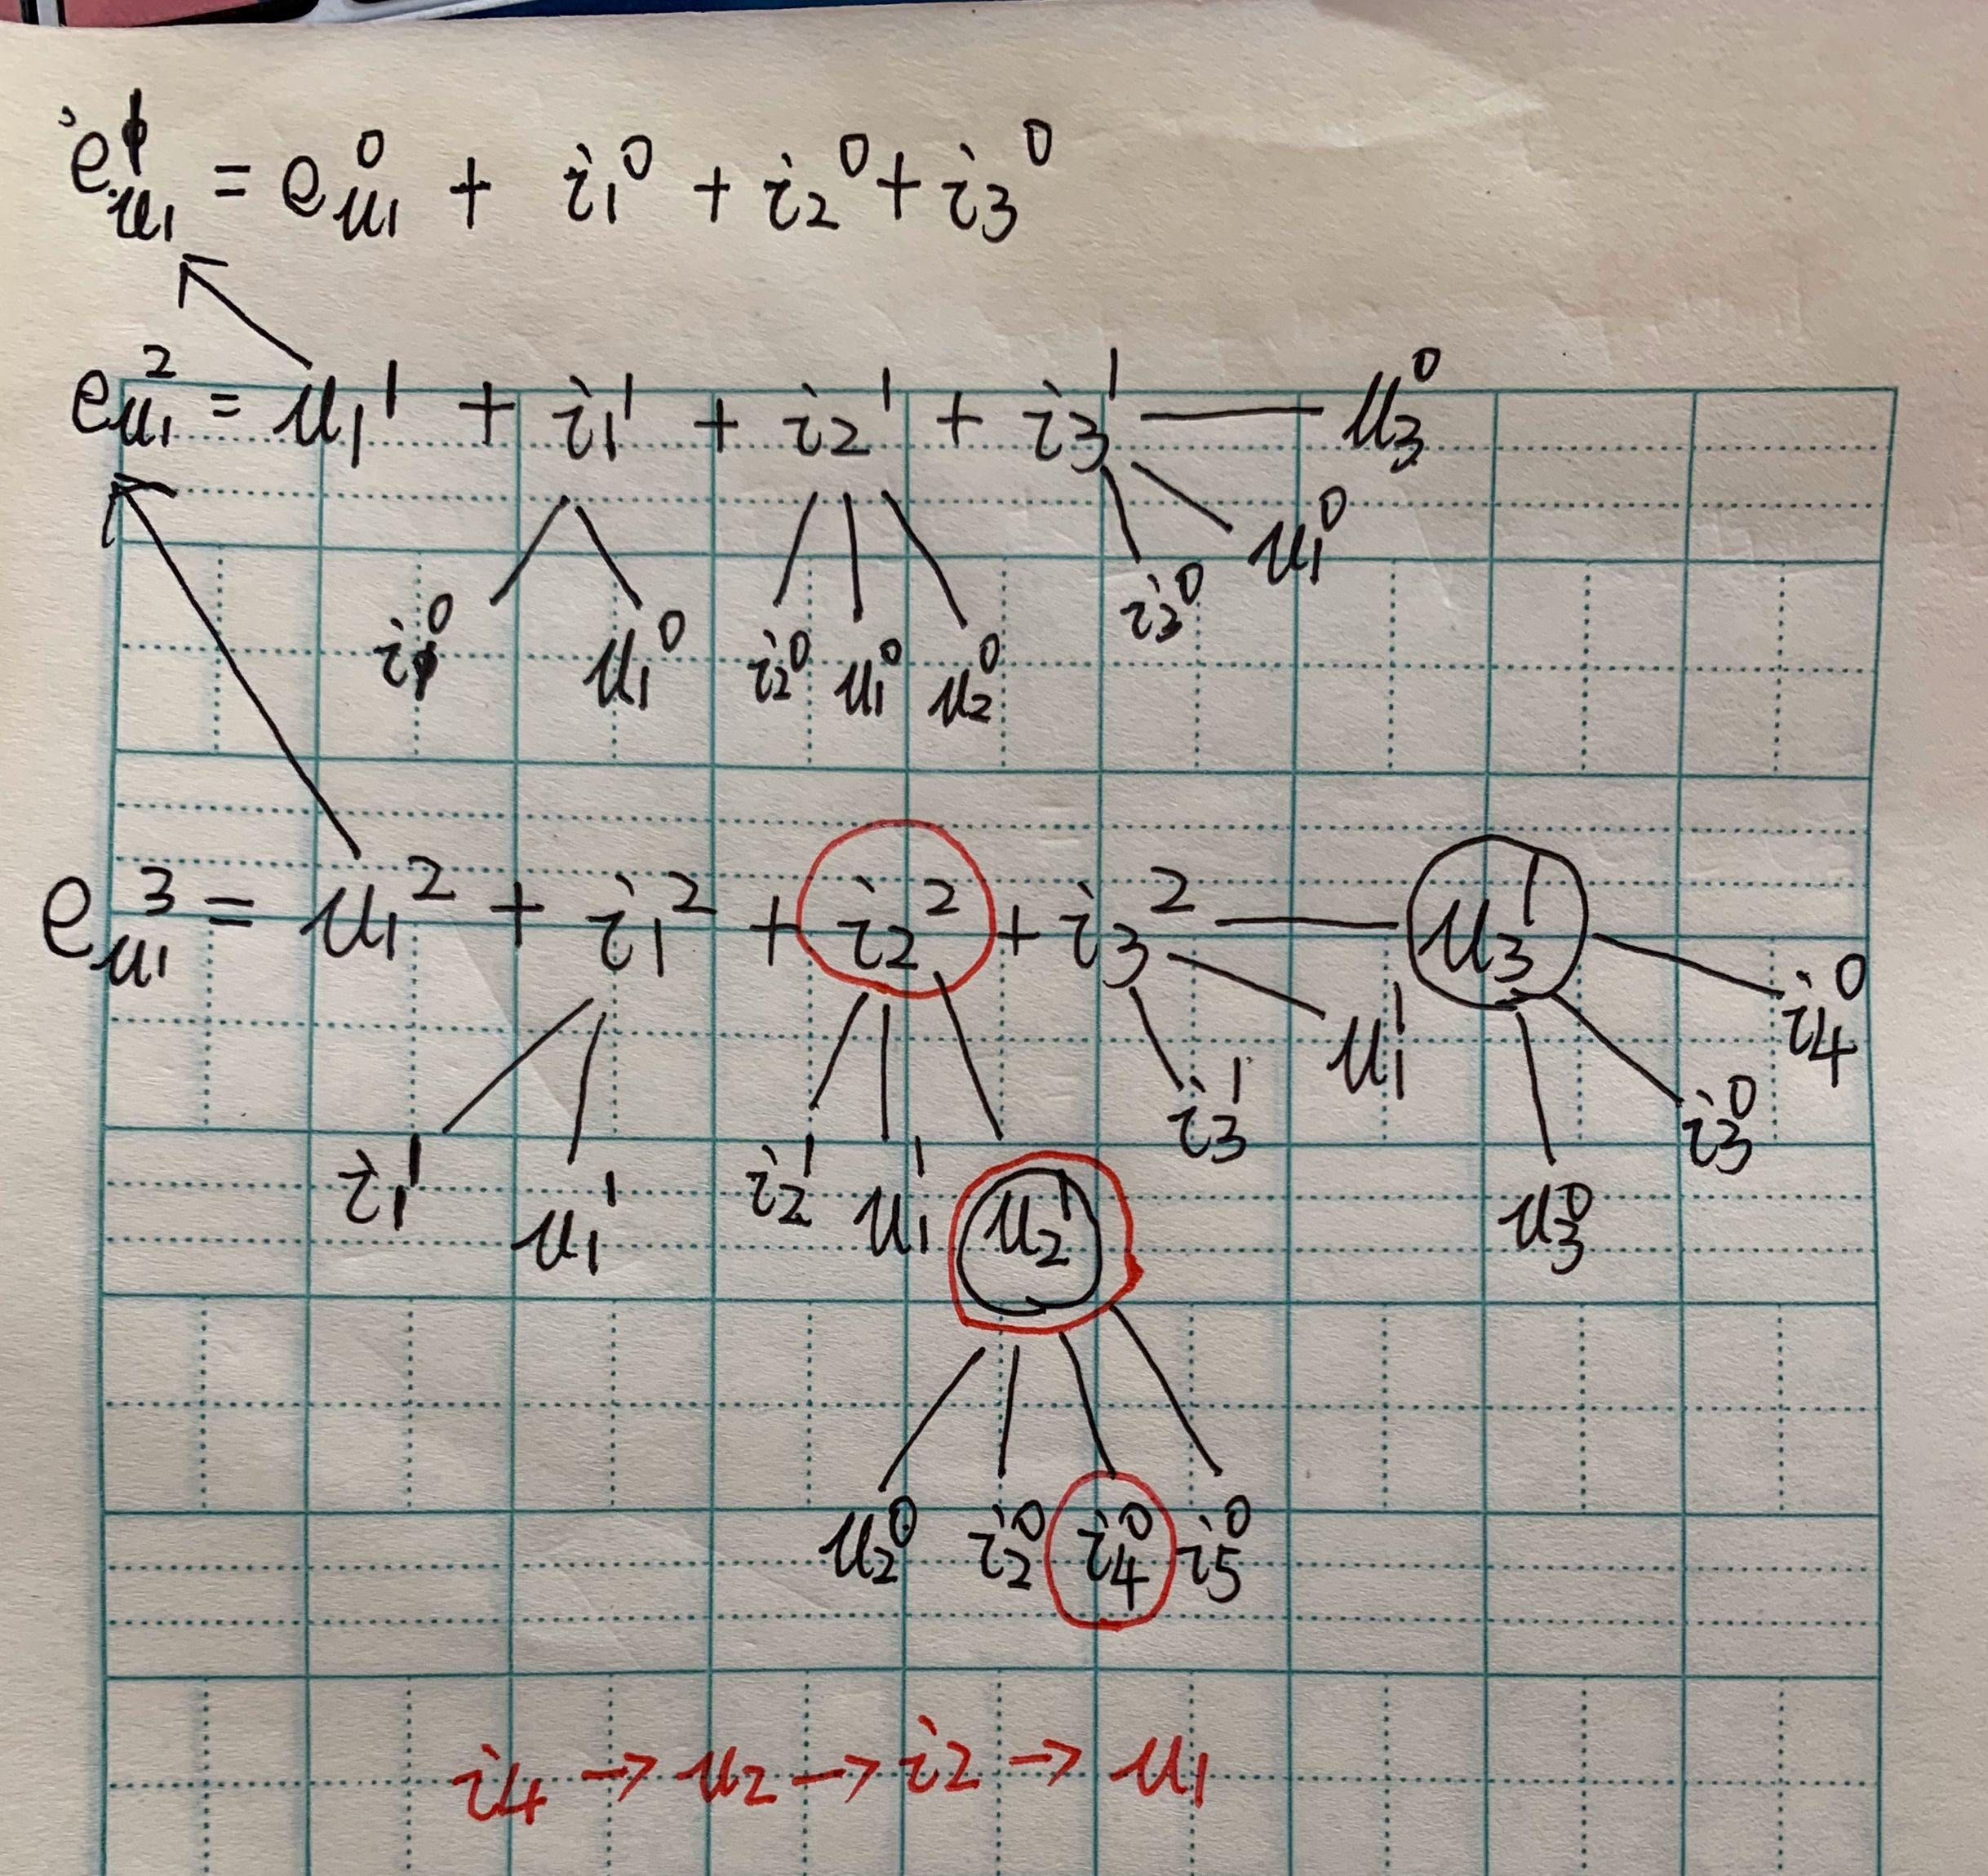 e_{u_1}^1 = e_{u_1}^0 + i_1^0 + i_2^0 + i_3^0
e_{u_1}^2 = u_1^1 + i_1^1 + i_2^1 + i_3^1 — u_3^0
u_1^0
i_3^0
i_1^0 u_1^0 i_2^0 u_1^0 u_2^0
e_{u_1}^3 = u_1^2 + i_1^2 + i_2^2 + i_3^2 — u_3^1
i_4^0
u_1^1
i_3^1 i_3^0
i_1^1 u_1^1 i_2^1 u_1^1 u_2^1 u_3^0
u_2^0 i_2^0 i_4^0 i_5^0
i_4 → u_2 → i_2 → u_1